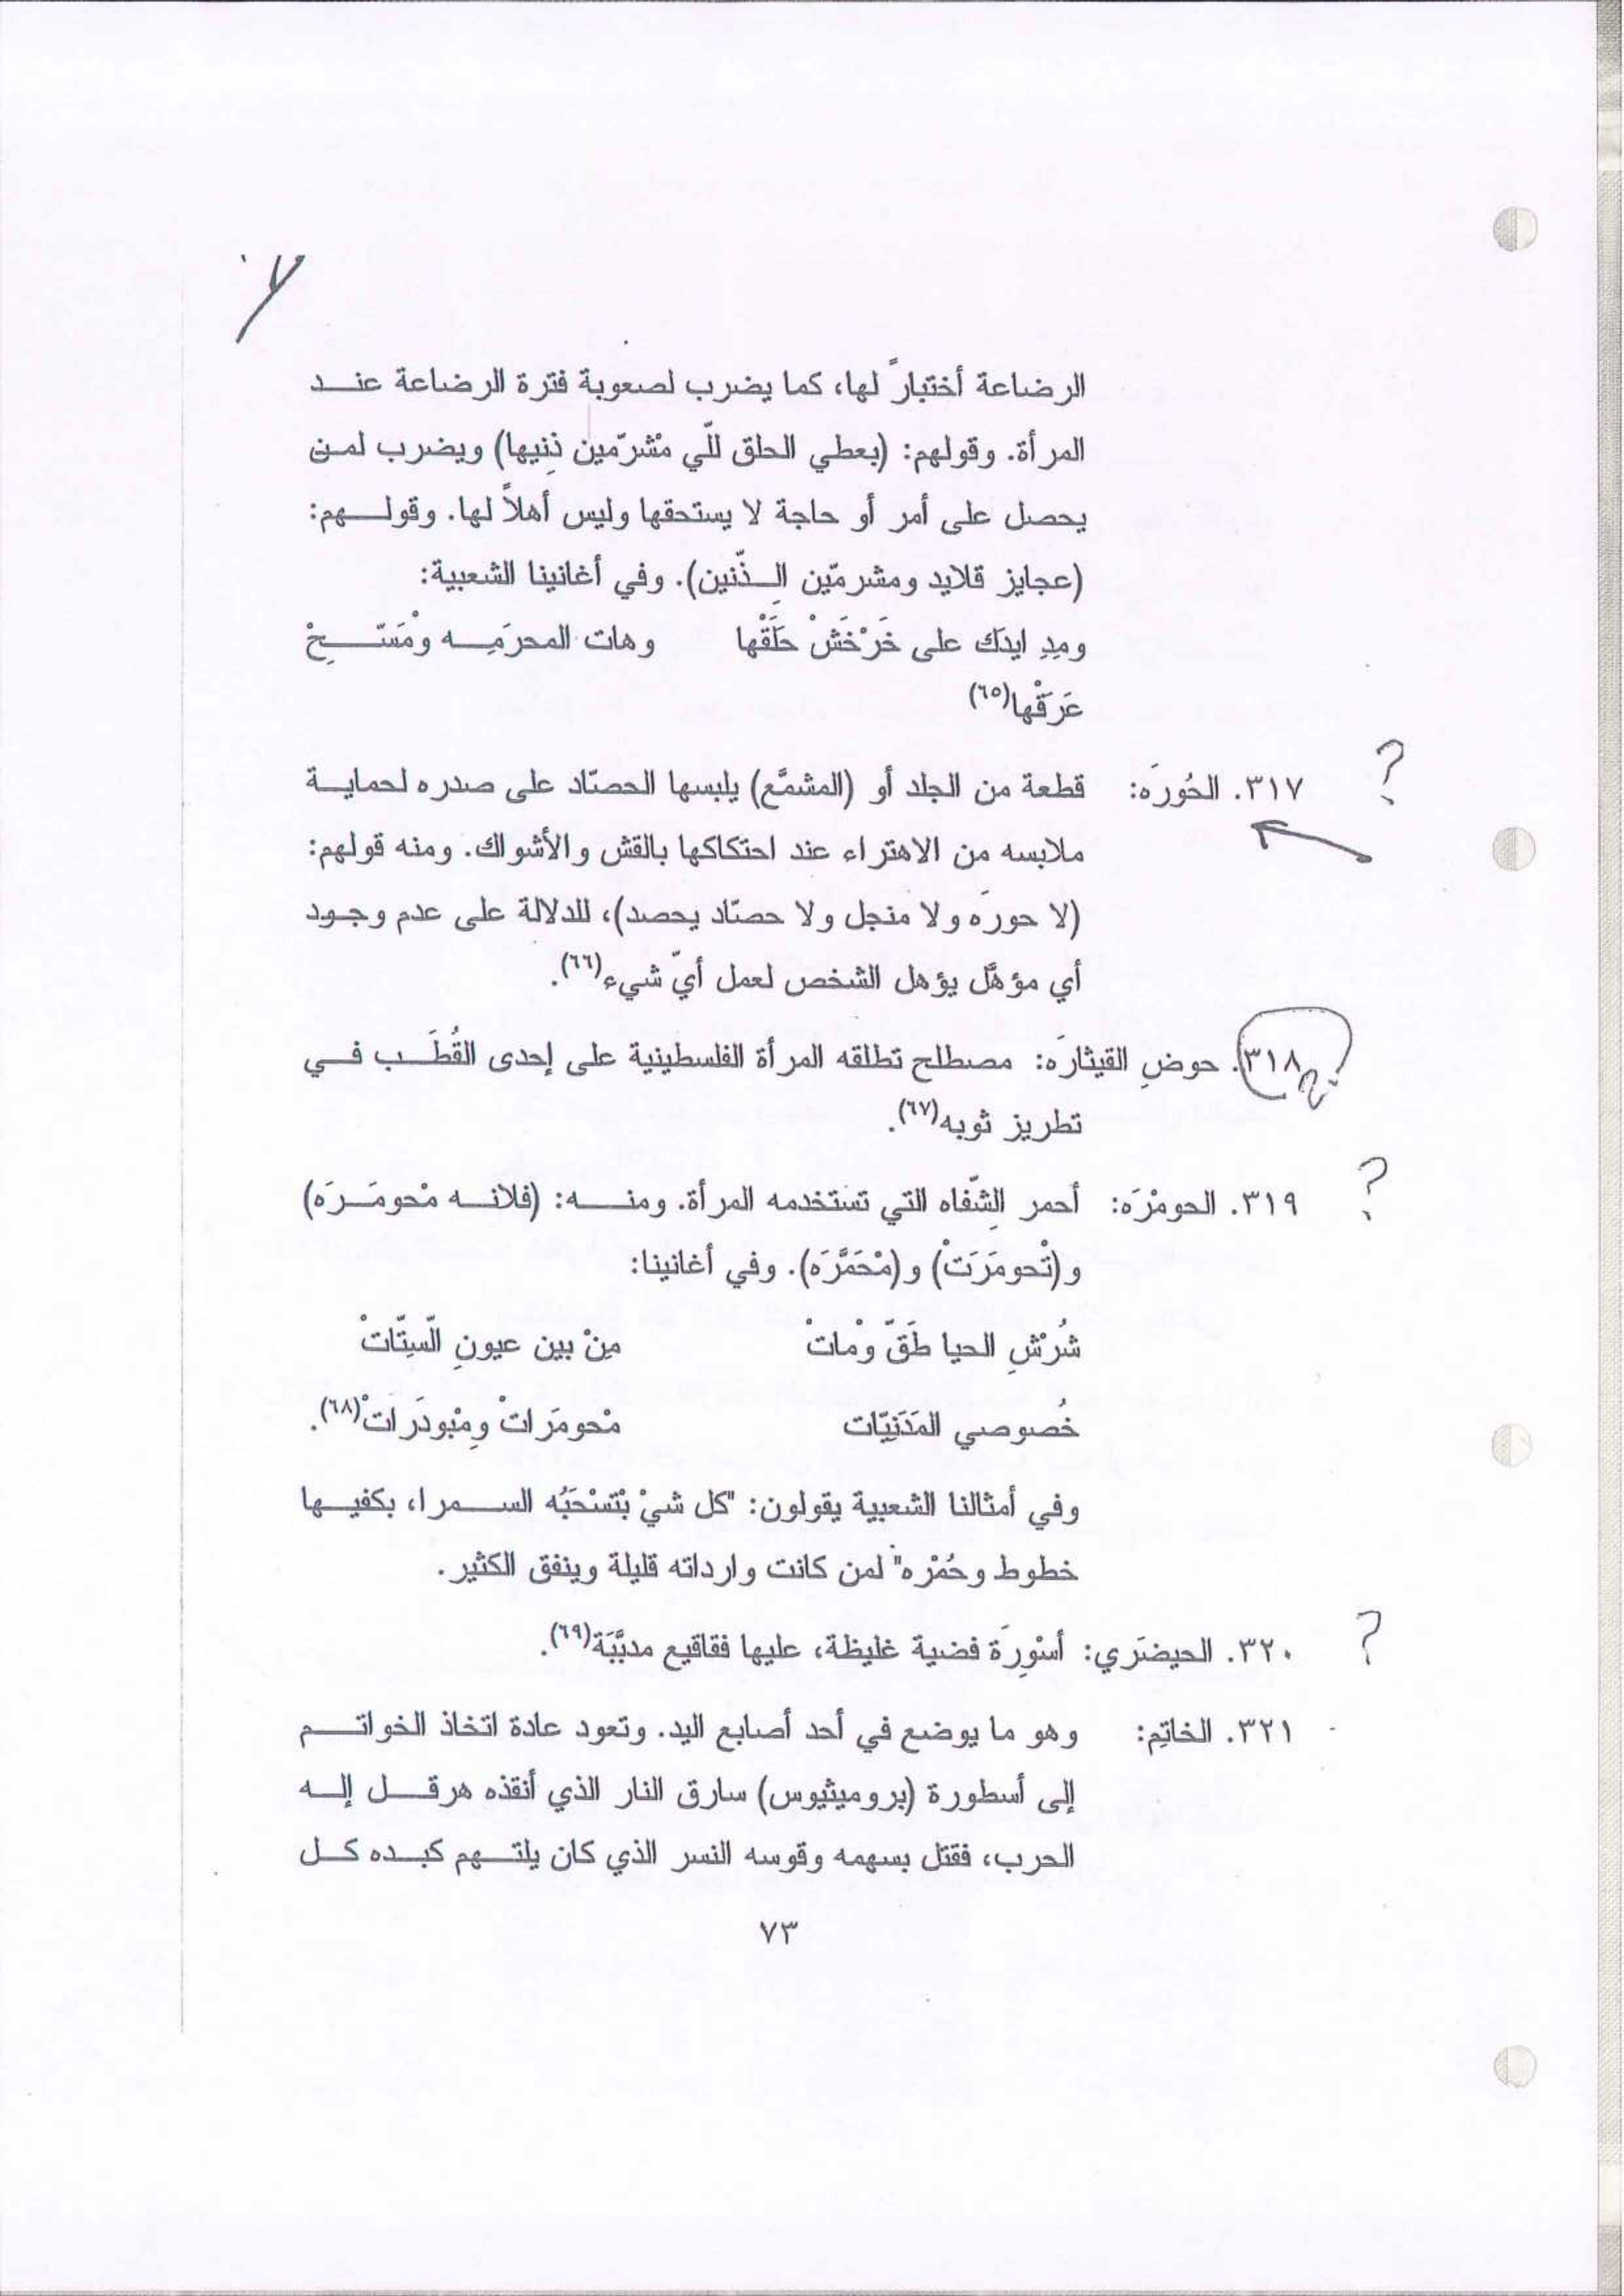 الرضاعة أختبارً لها، كما يضرب لصعوبة فترة الرضاعة عنـــد
المرأة. وقولهم: (بعطي الحلق للّي مْشرّمين ذِنيها) ويضرب لمـن
يحصل على أمر أو حاجة لا يستحقها وليس أهلاً لها. وقولـــهم:
(عجايز قلايد ومشرمّين الــذّنين). وفي أغانينا الشعبية:
ومِدِ ايدَك على خَرْخَشْ حَلَقْها وهات المحرَمِــه ومْسَّــــحْ
عَرَقْها(٦٥)
?
٣١٧. الحُورَه: قطعة من الجلد أو (المشمَّع) يلبسها الحصّاد على صدره لحمايـــة
ملابسه من الاهتراء عند احتكاكها بالقش والأشواك. ومنه قولهم:
(لا حورَه ولا منجل ولا حصّاد يحصد)، للدلالة على عدم وجـود
أي مؤهَّل يؤهل الشخص لعمل أيّ شيء(٦٦).
٣١٨. حوضِ القيثارَه: مصطلح تطلقه المرأة الفلسطينية على إحدى القُطَــب فـــي
تطريز ثوبه(٦٧).
?
٣١٩. الحومْرَه: أحمر الشِّفاه التي تستخدمه المرأة. ومنـــــه: (فلانـــه مْحومَـــرَه)
و(تْحومَرَتْ) و(مْحَمَّرَه). وفي أغانينا:
شُرْشِ الحيا طَقّ ومْاتْ مِنْ بين عيونِ السِّتّاتْ
خُصوصي المَدَنِيّات مْحومَراتْ ومِبْودَراتْ(٦٨).
وفي أمثالنا الشعبية يقولون: "كل شيْ بْتسْحَبُه الســـمرا، بكفيـــها
خطوط وحُمْره" لمن كانت وارداته قليلة وينفق الكثير.
?
٣٢٠. الحيضَري: أسْوِرَة فضية غليظة، عليها فقاقيع مدبَّبَة(٦٩).
٣٢١. الخاتِم: وهو ما يوضع في أحد أصابع اليد. وتعود عادة اتخاذ الخواتـــم
إلى أسطورة (بروميثيوس) سارق النار الذي أنقذه هرقـــل إلـــه
الحرب، فقتل بسهمه وقوسه النسر الذي كان يلتـــهم كبـــده كـــل
٧٣